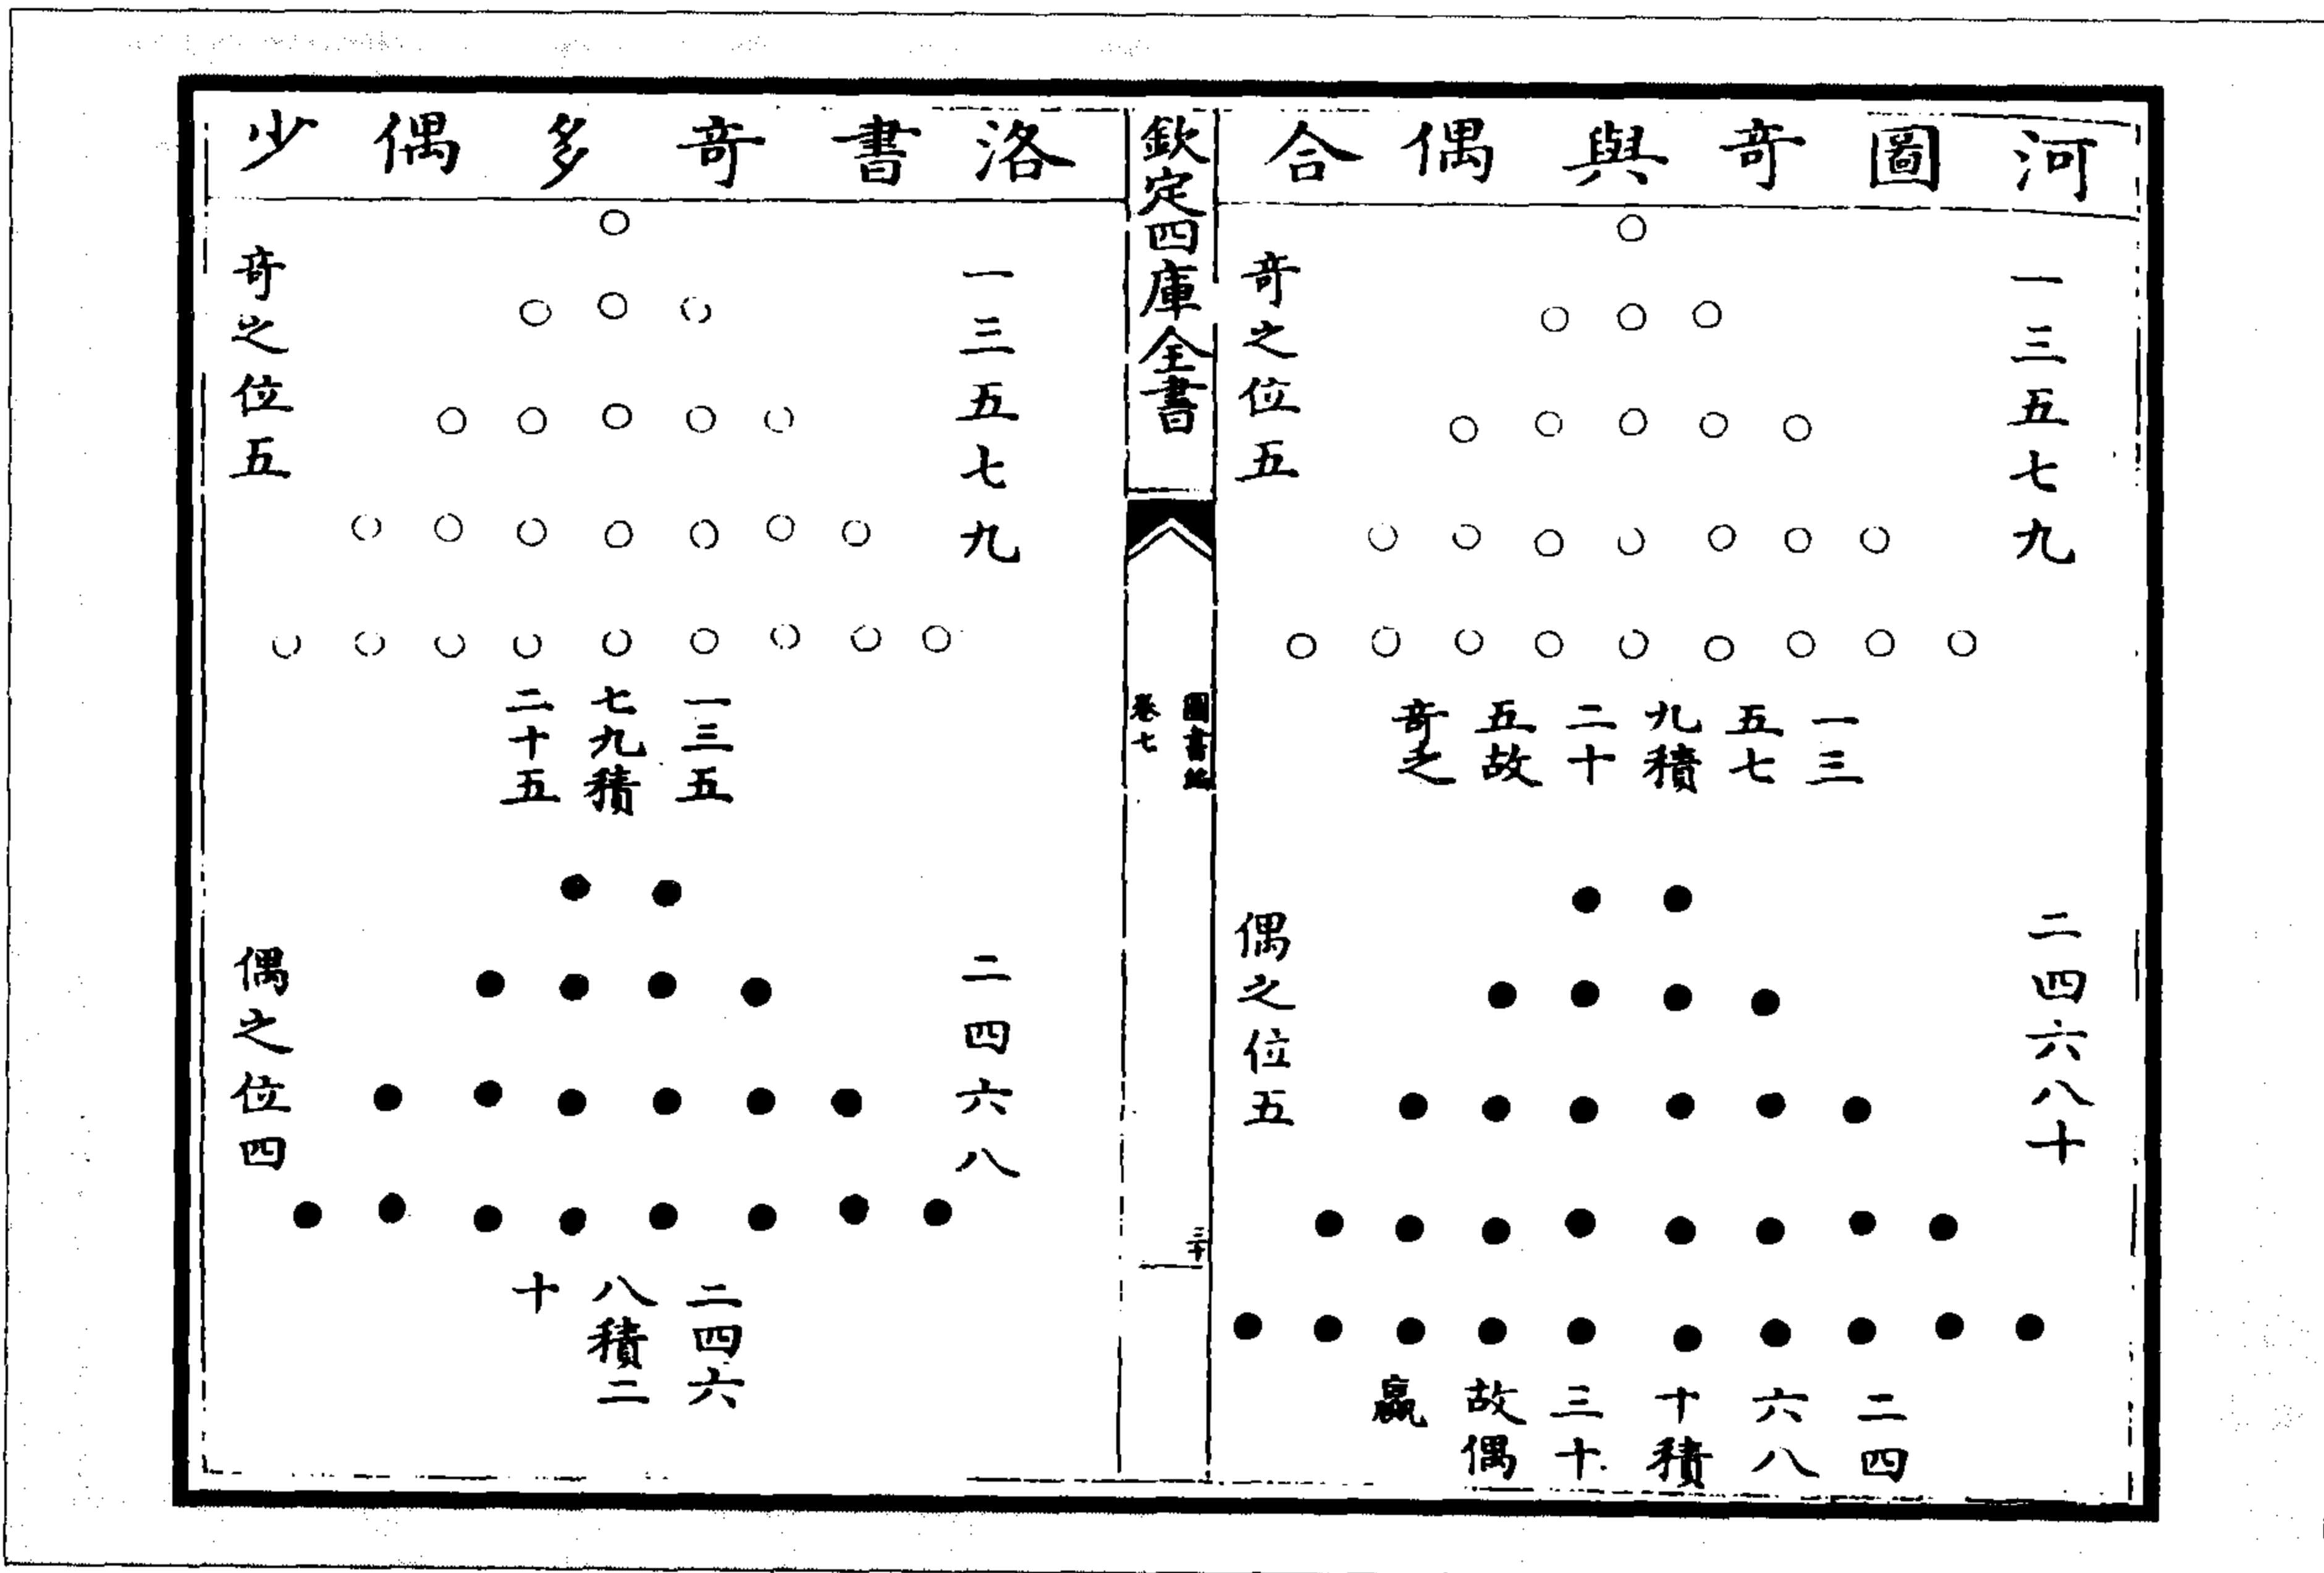 河圖竒與偶合
一三五七九
竒之位五
一三
五七
九積
二十
五故
竒之
二四六八十
偶之位五
二四
六八
十積
三十
故偶
贏
欽定四庫全書
圖書編
卷七
三十
洛書竒多偶少
一三五七九
竒之位五
一三五
七九積
二十五
二四六八
偶之位四
二四六
八積二
十